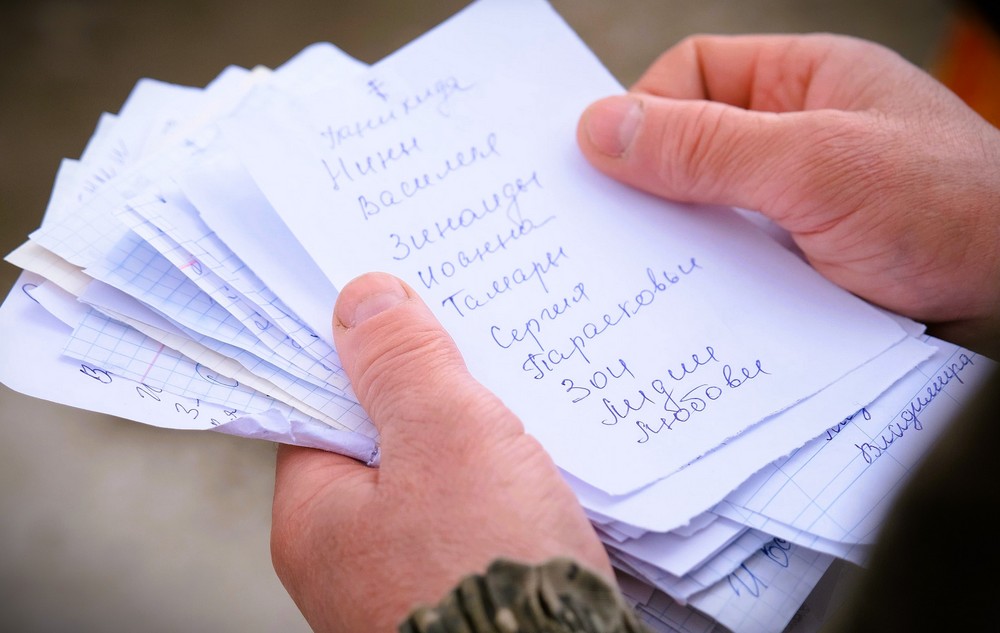 Панихида
Нины
Василия
Зинаиды
Иоанна
Тамары
Сергия
Парасковьи
Зои
Лидии
Любови
Владимира